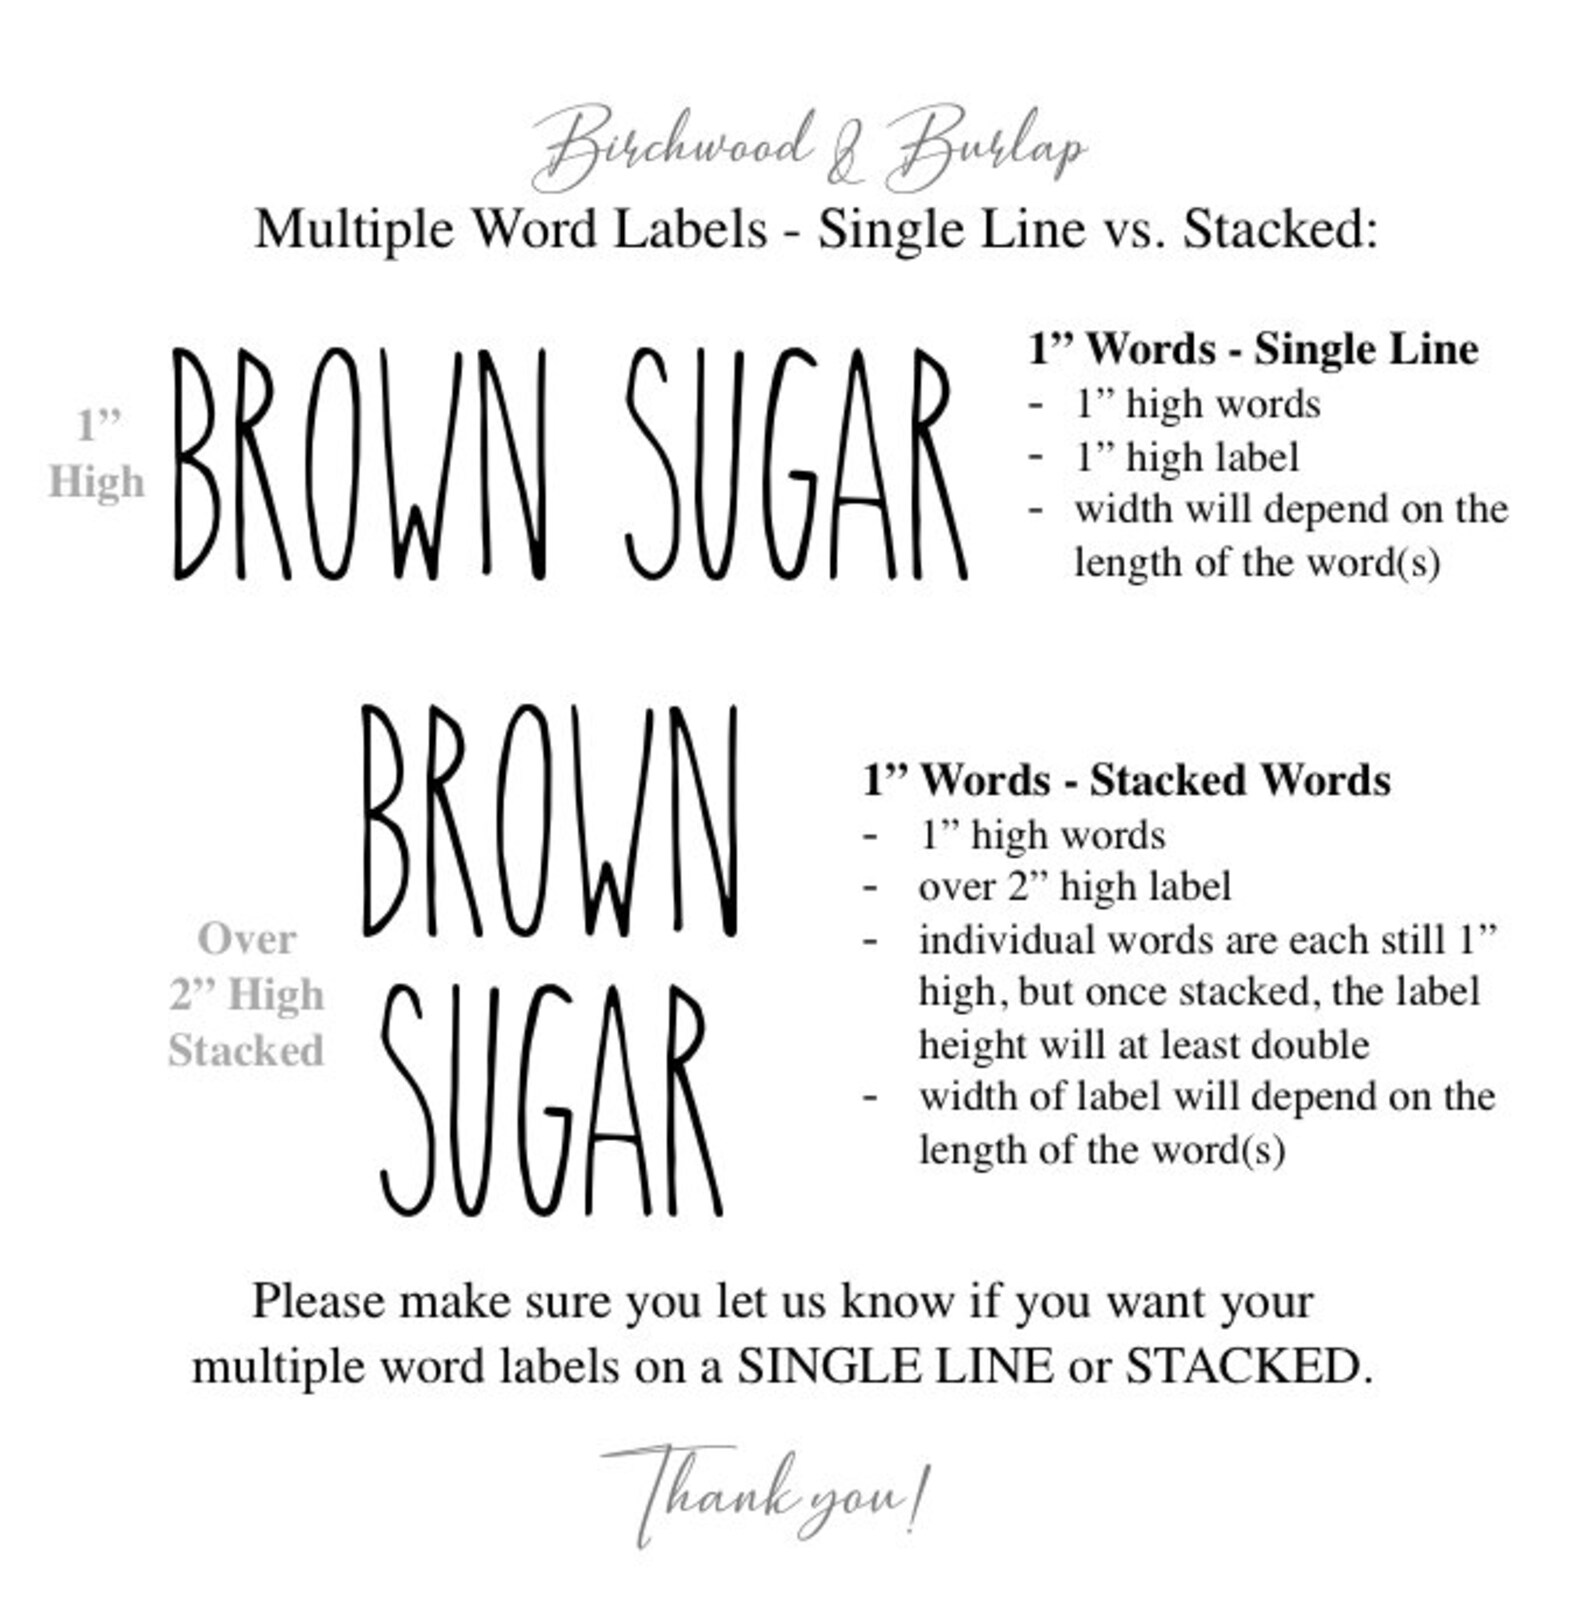 Birchwood & Burlap
Multiple Word Labels - Single Line vs. Stacked:
1”
High
BROWN SUGAR
1” Words - Single Line
- 1” high words
- 1” high label
- width will depend on the
length of the word(s)
Over
2” High
Stacked
BROWN
SUGAR
1” Words - Stacked Words
- 1” high words
- over 2” high label
- individual words are each still 1”
high, but once stacked, the label
height will at least double
- width of label will depend on the
length of the word(s)
Please make sure you let us know if you want your
multiple word labels on a SINGLE LINE or STACKED.
Thank you!